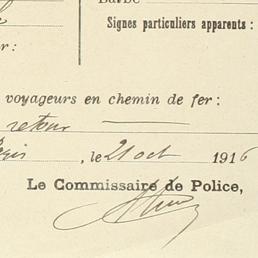 Barbe
Signes particuliers apparents :
r :
voyageurs en chemin de fer :
retour
, le 21 oct 1916
Le Commissaire de Police,